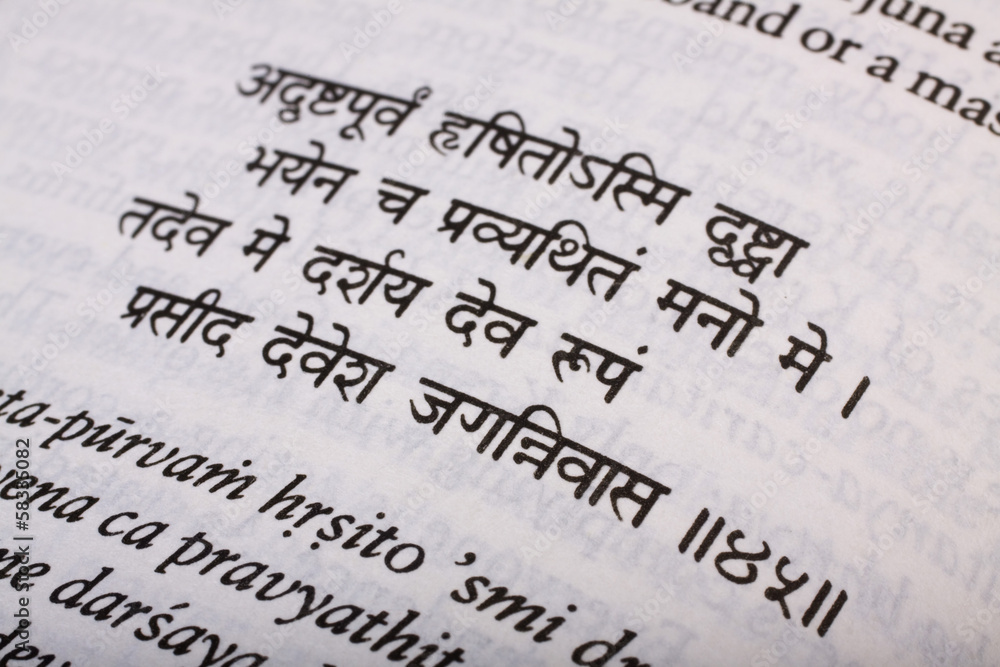 juna a
band or a mas
अदृष्टपूर्वं हृषितोऽस्मि दृष्ट्वा
भयेन च प्रव्यथितं मनो मे ।
तदेव मे दर्शय देव रूपं
प्रसीद देवेश जगन्निवास ॥४५॥
ṭa-pūrvaṁ hṛṣito ’smi dṛ
yena ca pravyathit
me darśaya
dev
Adobe Stock | #58385082